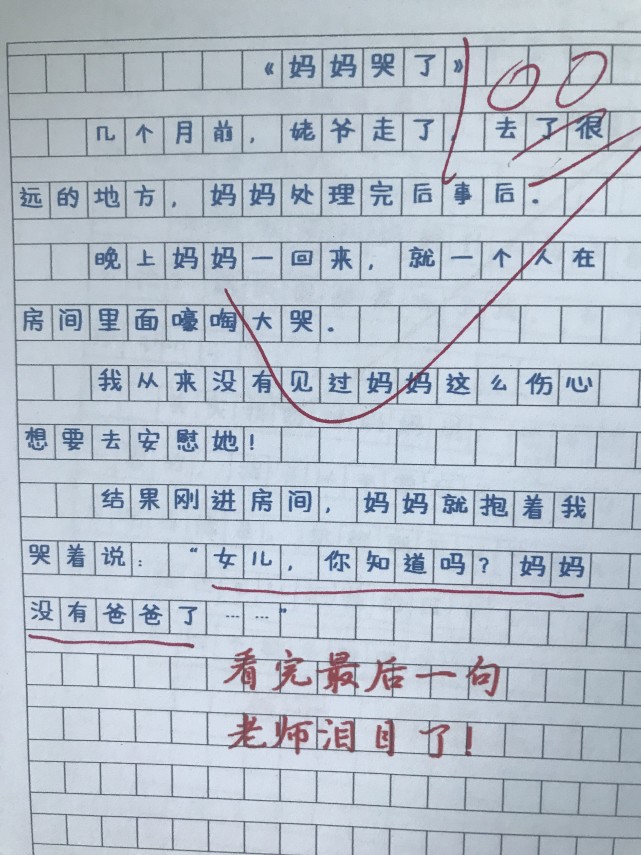 《妈妈哭了》 100
几个月前，姥爷走了，去了很
远的地方，妈妈处理完后事后。
晚上妈妈一回来，就一个人在
房间里面嚎啕大哭。
我从来没有见过妈妈这么伤心
想要去安慰她！
结果刚进房间，妈妈就抱着我
哭着说：“女儿，你知道吗？妈妈
没有爸爸了……”
看完最后一句
老师泪目了！